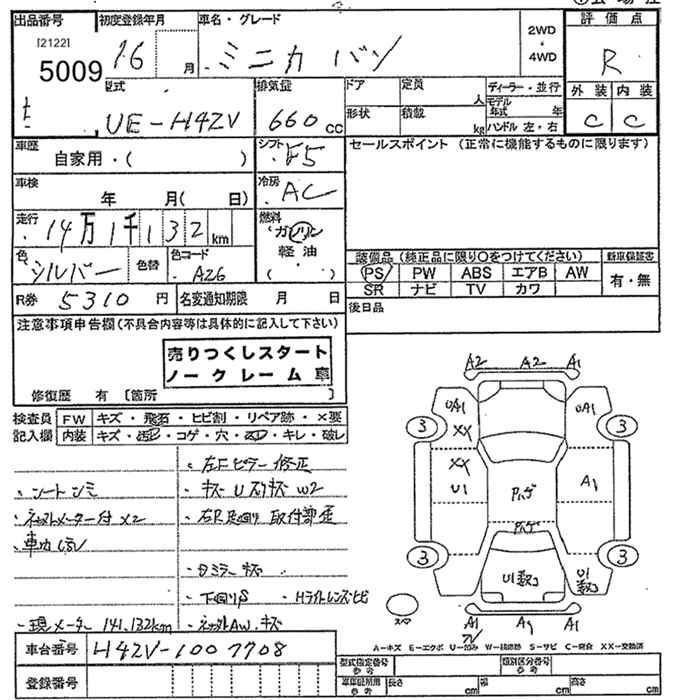 出品番号 初度登録年月 車名・グレード 2WD ・ 4WD 評価点
[2122]
5009 16 月 ミニカ バン R
型式 排気量 ドア 定員 人 ディーラー・並行 外装 内装
UE-H42V 660 cc 形状 積載 kg モデル年式 年 C C
ハンドル 左・右
車歴 自家用・( ) シフト F5 セールスポイント (正常に機能するものに限ります)
車検 年 月( 日) 冷房 AC
走行 14万1千132km 燃料 ガソリン
軽油
( ・ )
色 シルバー 色替 色コード A26
装備品 (純正品に限り○をつけてください) 新車保証書
PS PW ABS エアB AW 有・無
SR ナビ TV カワ
R券 5310 円 名変通知期限 月 日 後日品
注意事項申告欄(不具合内容等は具体的に記入して下さい)
売りつくしスタート
ノークレーム車
修復歴 有 〔箇所
検査員 FW キズ・飛石・ヒビ割・リペア跡・×要
記入欄 内装 キズ・汚れ・コゲ・穴・キレ・破レ
左Fピラー修正
シートシミ キズ Uスリキズ W2
メーター付 X2 右R足廻り 取付部歪
ミラーキズ
下回りS Hライトレンズヒビ
現メーター 141,132km AWキズ
車台番号 H42V-1007708
登録番号
A2 A2 A1
UA1 UA1
3 XX 3
XX
U1 A1
3 3
U1数コ U1数コ
スペア A1 A1
A-キズ E-エクボ U-凹み W-補修跡 S-サビ C-腐食 XX-交換済
型式指定番号 参考 類別区分番号 参考
車車証使用 参考 長さ cm 幅 cm 高さ cm